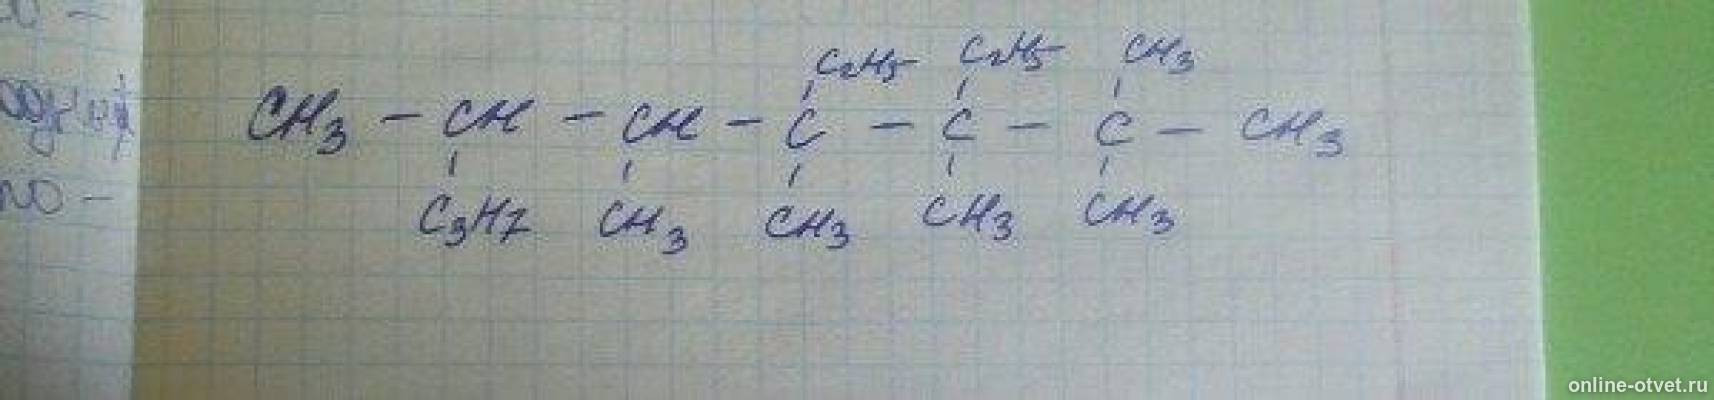 C2H5 C2H5 CH3
CH3 – CH – CH – C – C – C – CH3
C3H7 CH3 CH3 CH3 CH3
online-otvet.ru